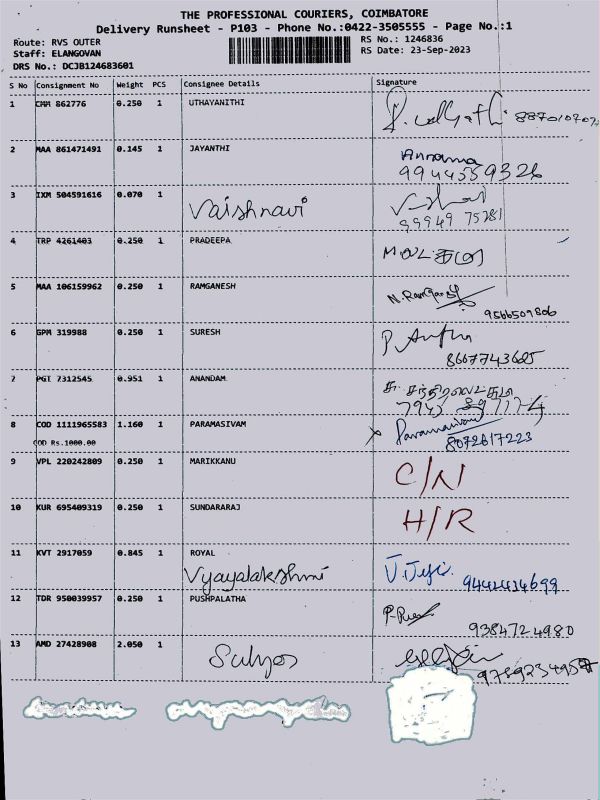 THE PROFESSIONAL COURIERS, COIMBATORE
Delivery Runsheet - P103 - Phone No.:0422-3505555 - Page No.:1
Route: RVS OUTER
Staff: ELANGOVAN
DRS No.: DCJB124683601
RS No.: 1246836
RS Date: 23-Sep-2023
S No Consignment No Weight PCS Consignee Details Signature
1 CMM 862776 0.250 1 UTHAYANITHI
2 MAA 861471491 0.145 1 JAYANTHI
9944559326
3 IXM 504591616 0.070 1
Vaishnavi
99949 75281
4 TRP 4261403 0.250 1 PRADEEPA
5 MAA 106159962 0.250 1 RAMGANESH N.Ramganesh
9566509806
6 GPM 319988 0.250 1 SURESH
8667743625
7 PGT 7312545 0.951 1 ANANDAM
8 COD 1111965583 1.160 1 PARAMASIVAM Paramasivam
COD Rs.1000.00 8072617223
9 VPL 220242809 0.250 1 MARIKKANU C/N
10 KUR 695409319 0.250 1 SUNDARARAJ H/R
11 KVT 2917059 0.845 1 ROYAL
Vyayalakshmi 9442434699
12 TDR 950039957 0.250 1 PUSHPALATHA
9384724980
13 AMD 27428908 2.050 1